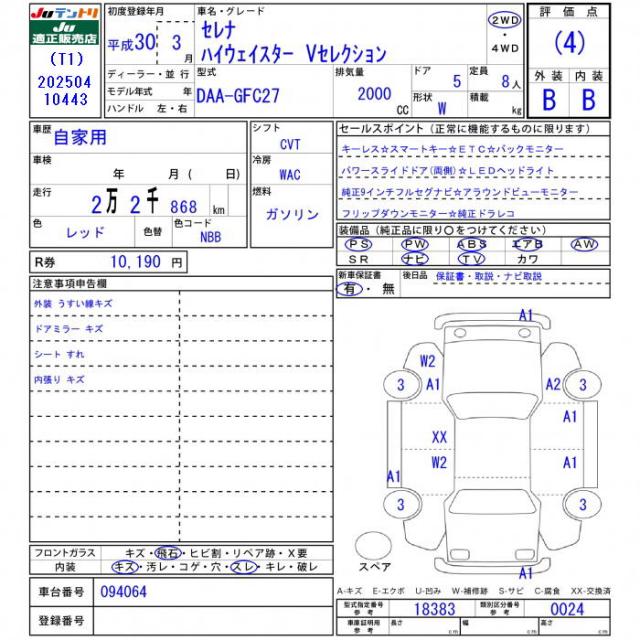 Juテントリ
Ju
適正販売店
(T1)
202504
10443
初度登録年月
平成30 3月
ディーラー・並行
モデル年式 年
ハンドル 左・右
車名・グレード
セレナ
ハイウェイスター Vセレクション
2WD
・
4WD
型式
DAA-GFC27
排気量
2000 CC
ドア 5
形状 W
定員 8人
積載 kg
評価点
(4)
外装 内装
B B
車歴
自家用
車検
年 月( 日)
走行
2万 2千 868 km
色
レッド
色替
色コード
NBB
シフト
CVT
冷房
WAC
燃料
ガソリン
R券 10,190 円
セールスポイント(正常に機能するものに限ります)
キーレス☆スマートキー☆ETC☆バックモニター
パワースライドドア(両側)☆LEDヘッドライト
純正9インチフルセグナビ☆アラウンドビューモニター
フリップダウンモニター☆純正ドラレコ
装備品(純正品に限り○をつけてください)
PS PW ABS エアB AW
SR ナビ TV カワ
新車保証書
有・無
後日品 保証書・取説・ナビ取説
注意事項申告欄
外装 うすい線キズ
ドアミラー キズ
シート すれ
内張り キズ
A1
W2
3 A1 A2 3
A1
XX
W2 A1
A1
3 3
A1
スペア
フロントガラス キズ・飛石・ヒビ割・リペア跡・X要
内装 キズ・汚レ・コゲ・穴・スレ・キレ・破レ
車台番号 094064
登録番号
A-キズ E-エクボ U-凹み W-補修跡 S-サビ C-腐食 XX-交換済
型式指定番号 参考 18383 類別区分番号 参考 0024
車庫証明用 参考 長さ cm 幅 cm 高さ cm